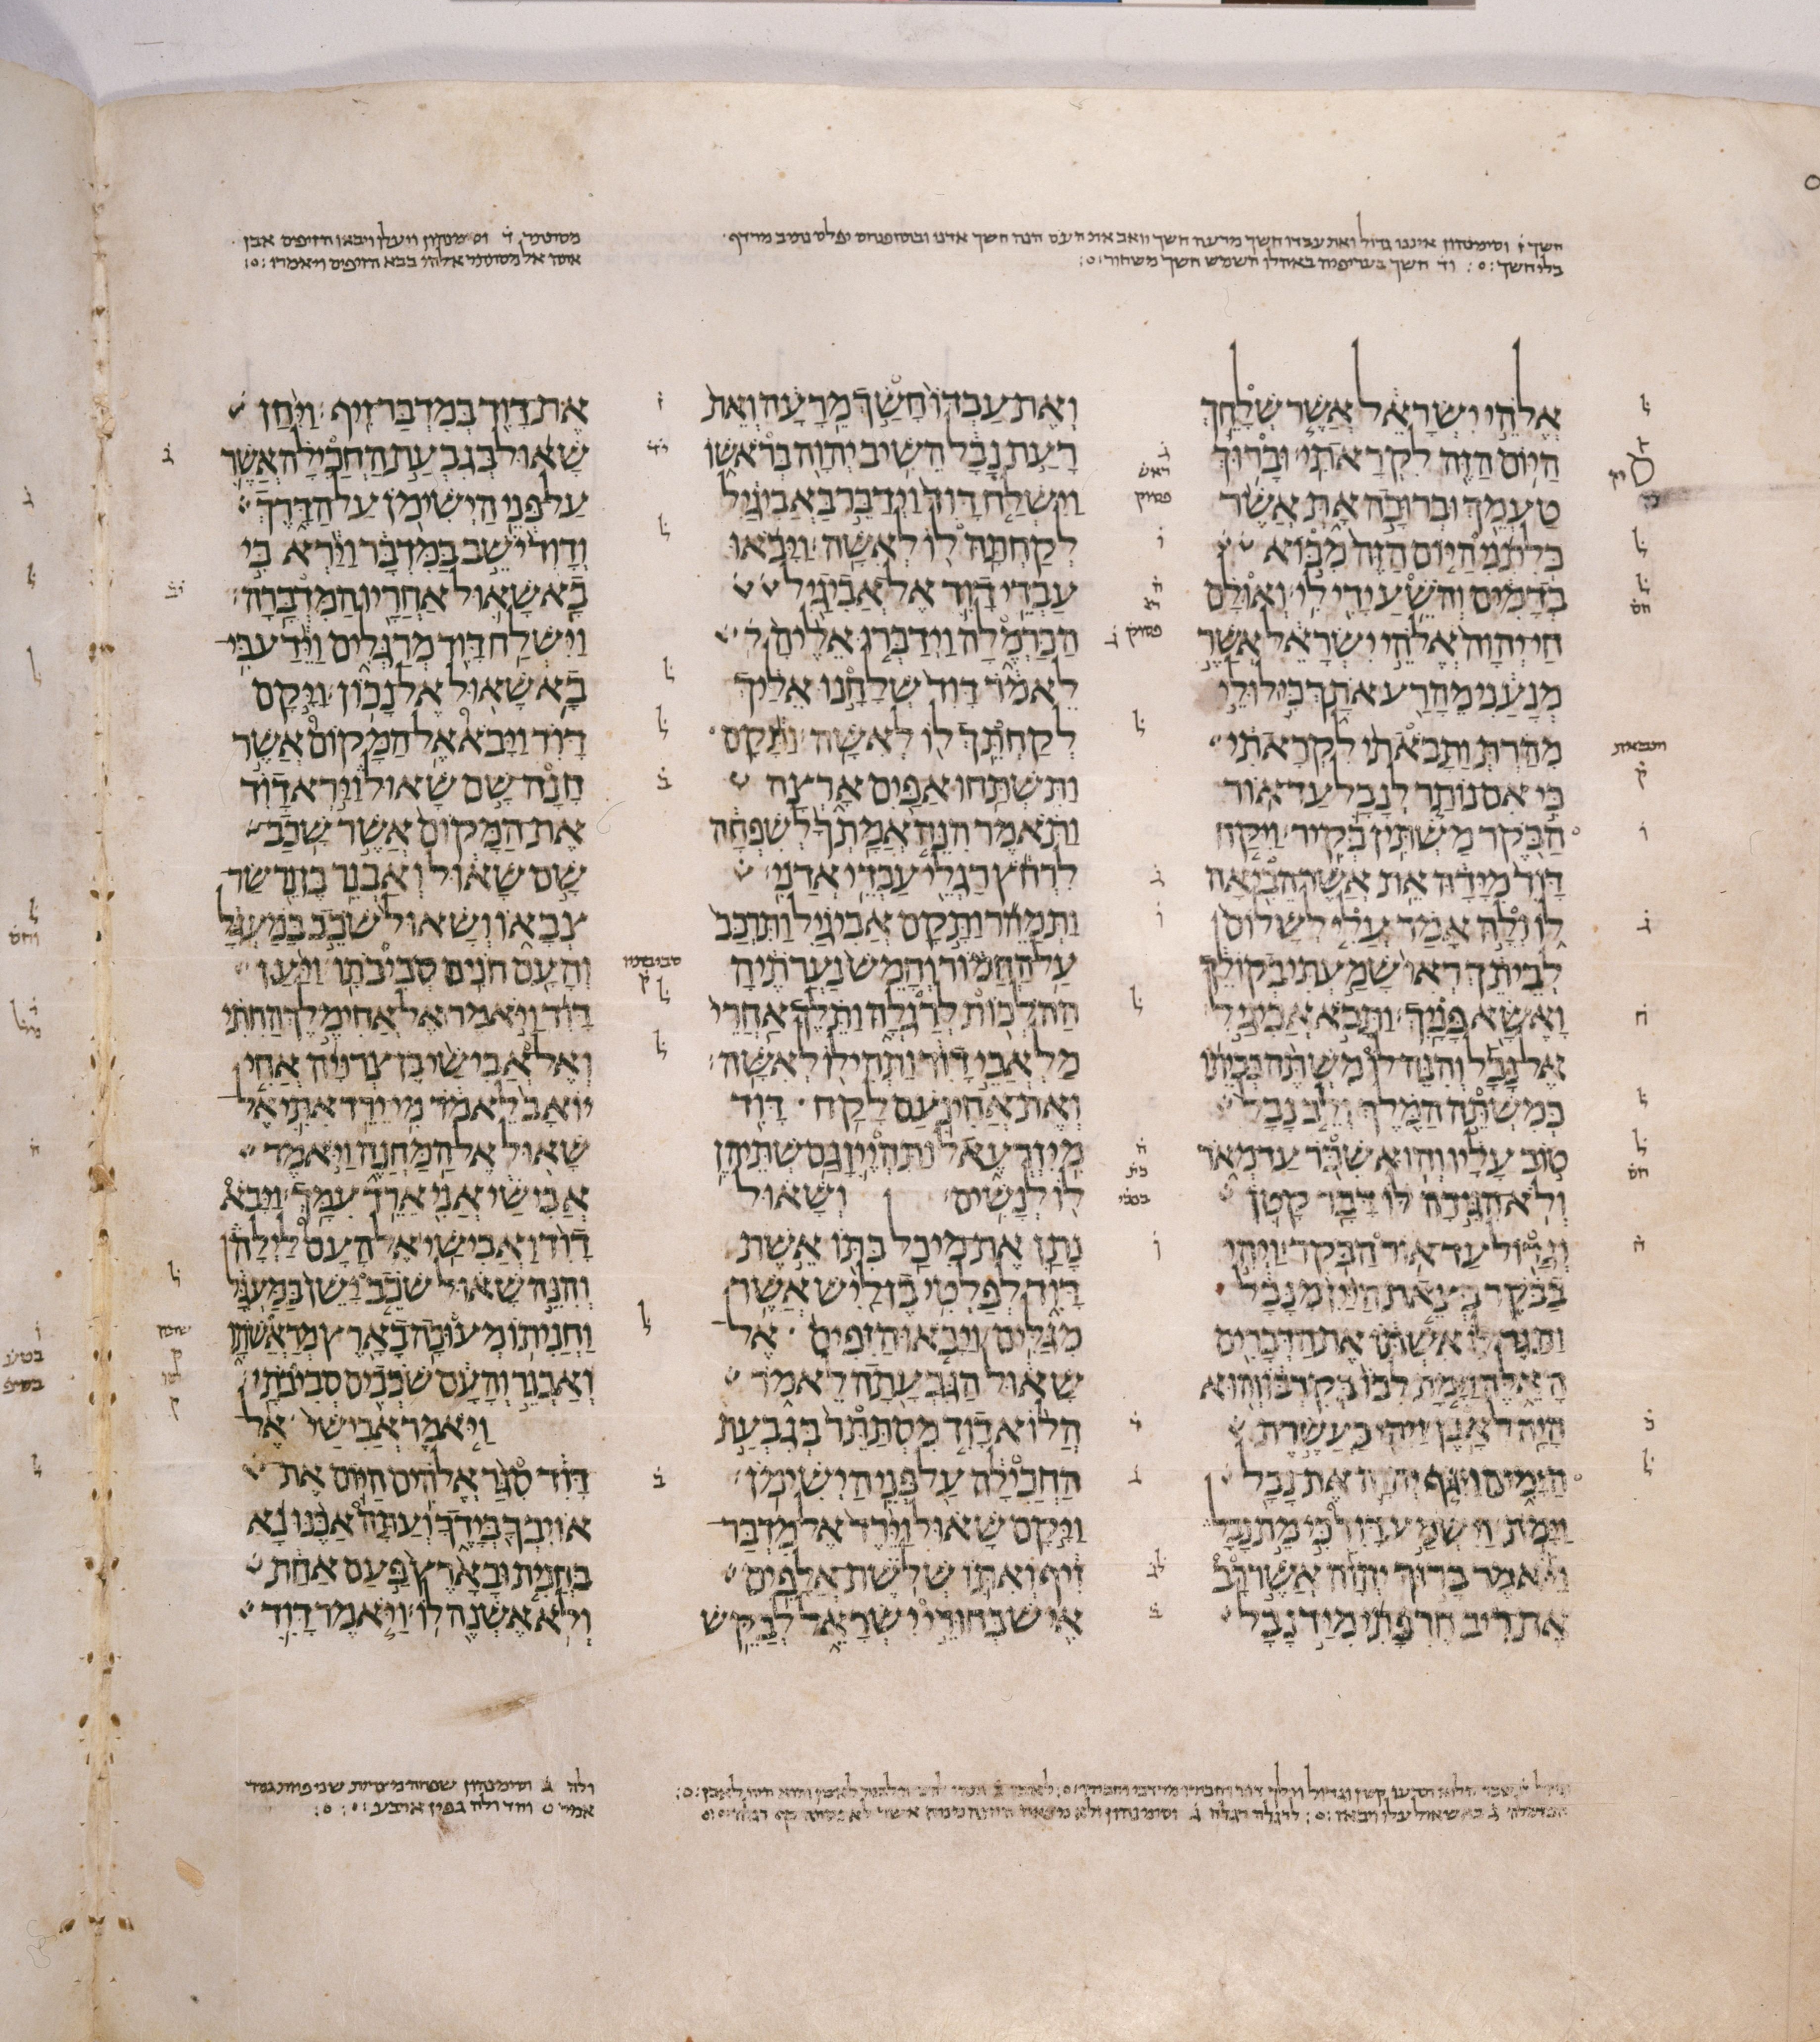 חשך ז וסימנהון איננו גדול ואת עבדו חשך מרעה חשך
אֱלֹהֵי יִשְׂרָאֵל אֲשֶׁר שְׁלָחֵךְ
הַיּוֹם הַזֶּה לִקְרָאתִי וּבָרוּךְ
טַעְמֵךְ וּבְרוּכָה אָתְּ אֲשֶׁר
כְּלִתִנִי הַיּוֹם הַזֶּה מִבּוֹא
בְדָמִים וְהֹשֵׁעַ יָדִי לִי וְאוּלָם
חַי יְהוָה אֱלֹהֵי יִשְׂרָאֵל אֲשֶׁר
מְנָעַנִי מֵהָרַע אֹתָךְ כִּי לוּלֵי
מִהַרְתְּ וַתָּבֹאתִי לִקְרָאתִי
כִּי אִם נוֹתַר לְנָבָל עַד אוֹר
הַבֹּקֶר מַשְׁתִּין בְּקִיר וַיִּקַּח
דָּוִד מִיָּדָהּ אֵת אֲשֶׁר הֵבִיאָה
לוֹ וְלָהּ אָמַר עֲלִי לְשָׁלוֹם
לְבֵיתֵךְ רְאִי שָׁמַעְתִּי בְקוֹלֵךְ
וָאֶשָּׂא פָּנָיִךְ וַתָּבֹא אֲבִיגַיִל
אֶל נָבָל וְהִנֵּה לוֹ מִשְׁתֶּה בְּבֵיתוֹ
כְּמִשְׁתֵּה הַמֶּלֶךְ וְלֵב נָבָל
טוֹב עָלָיו וְהוּא שִׁכֹּר עַד מְאֹד
וְלֹא הִגִּידָה לּוֹ דָּבָר קָטֹן
וְגָדוֹל עַד אוֹר הַבֹּקֶר וַיְהִי
בַבֹּקֶר בְּצֵאת הַיַּיִן מִנָּבָל
וַתַּגֶּד לוֹ אִשְׁתּוֹ אֶת הַדְּבָרִים
הָאֵלֶּה וַיָּמָת לִבּוֹ בְּקִרְבּוֹ וְהוּא
הָיָה לְאָבֶן וַיְהִי כַּעֲשֶׂרֶת
הַיָּמִים וַיִּגֹּף יְהוָה אֶת נָבָל
וַיָּמֹת וַיִּשְׁמַע דָּוִד כִּי מֵת נָבָל
וַיֹּאמֶר בָּרוּךְ יְהוָה אֲשֶׁר רָב
אֶת רִיב חֶרְפָּתִי מִיַּד נָבָל
וְאֶת עַבְדּוֹ חָשַׂךְ מֵרָעָה וְאֵת
רָעַת נָבָל הֵשִׁיב יְהוָה בְּרֹאשׁוֹ
וַיִּשְׁלַח דָּוִד וַיְדַבֵּר בַּאֲבִיגַיִל
לְקַחְתָּהּ לוֹ לְאִשָּׁה וַיָּבֹאוּ
עַבְדֵי דָוִד אֶל אֲבִיגַיִל
הַכַּרְמֶלָה וַיְדַבְּרוּ אֵלֶיהָ
לֵאמֹר דָּוִד שְׁלָחָנוּ אֵלַיִךְ
לְקַחְתֵּךְ לוֹ לְאִשָּׁה וַתָּקָם
וַתִּשְׁתַּחוּ אַפַּיִם אָרְצָה
וַתֹּאמֶר הִנֵּה אֲמָתְךָ לְשִׁפְחָה
לִרְחֹץ רַגְלֵי עַבְדֵי אֲדֹנִי
וַתְּמַהֵר וַתָּקָם אֲבִיגַיִל וַתִּרְכַּב
עַל הַחֲמוֹר וְחָמֵשׁ נַעֲרֹתֶיהָ
הַהֹלְכוֹת לְרַגְלָהּ וַתֵּלֶךְ אַחֲרֵי
מַלְאֲכֵי דָוִד וַתְּהִי לוֹ לְאִשָּׁה
וְאֶת אֲחִינֹעַם לָקַח דָּוִד
מִיִּזְרְעֶאל וַתִּהְיֶיןָ גַּם שְׁתֵּיהֶן
לוֹ לְנָשִׁים וְשָׁאוּל
נָתַן אֶת מִיכַל בִּתּוֹ אֵשֶׁת
דָּוִד לְפַלְטִי בֶן לַיִשׁ אֲשֶׁר
מִגַּלִּים וַיָּבֹאוּ הַזִּפִים אֶל
שָׁאוּל הַגִּבְעָתָה לֵאמֹר
הֲלוֹא דָוִד מִסְתַּתֵּר בְּגִבְעַת
הַחֲכִילָה עַל פְּנֵי הַיְשִׁימֹן
וַיָּקָם שָׁאוּל וַיֵּרֶד אֶל מִדְבַּר
זִיף וְאִתּוֹ שְׁלֹשֶׁת אֲלָפִים
אִישׁ בְּחוּרֵי יִשְׂרָאֵל לְבַקֵּשׁ
אֶת דָּוִד בְּמִדְבַּר זִיף וַיִּחַן
שָׁאוּל בְּגִבְעַת הַחֲכִילָה אֲשֶׁר
עַל פְּנֵי הַיְשִׁימֹן עַל הַדָּרֶךְ
וְדָוִד יֹשֵׁב בַּמִּדְבָּר וַיַּרְא כִּי
בָא שָׁאוּל אַחֲרָיו הַמִּדְבָּרָה
וַיִּשְׁלַח דָּוִד מְרַגְּלִים וַיֵּדַע כִּי
בָא שָׁאוּל אֶל נָכוֹן וַיָּקָם
דָּוִד וַיָּבֹא אֶל הַמָּקוֹם אֲשֶׁר
חָנָה שָׁם שָׁאוּל וַיַּרְא דָּוִד
אֶת הַמָּקוֹם אֲשֶׁר שָׁכַב
שָׁם שָׁאוּל וְאַבְנֵר בֶּן נֵר שַׂר
צְבָאוֹ וְשָׁאוּל שֹׁכֵב בַּמַּעְגָּל
וְהָעָם חֹנִים סְבִיבֹתָו וַיַּעַן
דָּוִד וַיֹּאמֶר אֶל אֲחִימֶלֶךְ הַחִתִּי
וְאֶל אֲבִישַׁי בֶּן צְרוּיָה אֲחִי
יוֹאָב לֵאמֹר מִי יֵרֵד אִתִּי אֶל
שָׁאוּל אֶל הַמַּחֲנֶה וַיֹּאמֶר
אֲבִישַׁי אֲנִי אֵרֵד עִמָּךְ וַיָּבֹא
דָוִד וַאֲבִישַׁי אֶל הָעָם לַיְלָה
וְהִנֵּה שָׁאוּל שֹׁכֵב יָשֵׁן בַּמַּעְגָּל
וַחֲנִיתוֹ מְעוּכָה בָאָרֶץ מְרַאֲשֹׁתָו
וְאַבְנֵר וְהָעָם שֹׁכְבִים סְבִיבֹתָו
וַיֹּאמֶר אֲבִישַׁי אֶל
דָּוִד סִגַּר אֱלֹהִים הַיּוֹם אֶת
אוֹיִבְךָ בְּיָדֶךָ וְעַתָּה אַכֶּנּוּ נָא
בַּחֲנִית וּבָאָרֶץ פַּעַם אַחַת
וְלֹא אֶשְׁנֶה לוֹ וַיֹּאמֶר דָּוִד